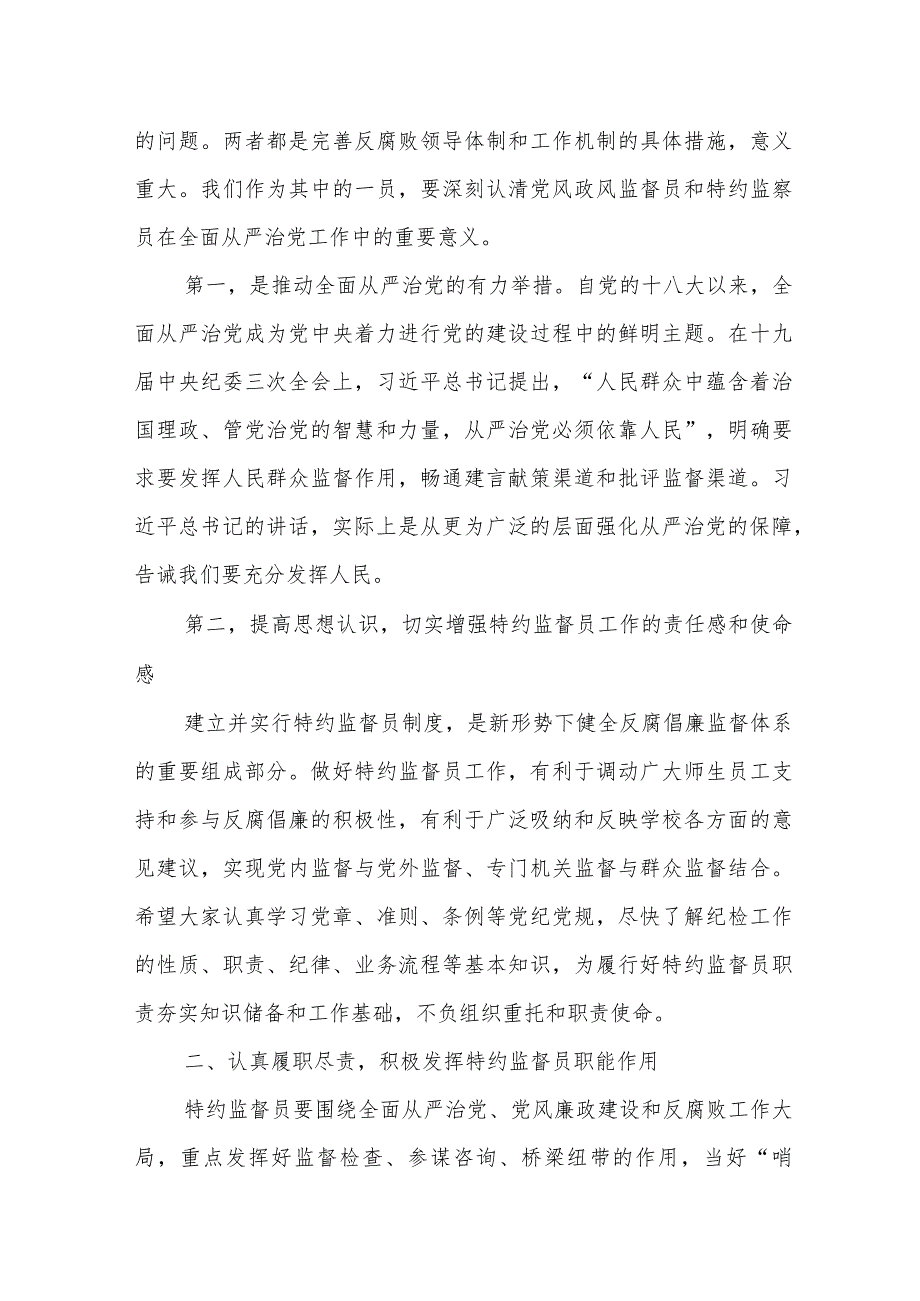 的问题。两者都是完善反腐败领导体制和工作机制的具体措施，意义
重大。我们作为其中的一员，要深刻认清党风政风监督员和特约监察
员在全面从严治党工作中的重要意义。
第一，是推动全面从严治党的有力举措。自党的十八大以来，全
面从严治党成为党中央着力进行党的建设过程中的鲜明主题。在十九
届中央纪委三次全会上，习近平总书记提出，“人民群众中蕴含着治
国理政、管党治党的智慧和力量，从严治党必须依靠人民”，明确要
求要发挥人民群众监督作用，畅通建言献策渠道和批评监督渠道。习
近平总书记的讲话，实际上是从更为广泛的层面强化从严治党的保障，
告诫我们要充分发挥人民。
第二，提高思想认识，切实增强特约监督员工作的责任感和使命
感
建立并实行特约监督员制度，是新形势下健全反腐倡廉监督体系
的重要组成部分。做好特约监督员工作，有利于调动广大师生员工支
持和参与反腐倡廉的积极性，有利于广泛吸纳和反映学校各方面的意
见建议，实现党内监督与党外监督、专门机关监督与群众监督结合。
希望大家认真学习党章、准则、条例等党纪党规，尽快了解纪检工作
的性质、职责、纪律、业务流程等基本知识，为履行好特约监督员职
责夯实知识储备和工作基础，不负组织重托和职责使命。
二、认真履职尽责，积极发挥特约监督员职能作用
特约监督员要围绕全面从严治党、党风廉政建设和反腐败工作大
局，重点发挥好监督检查、参谋咨询、桥梁纽带的作用，当好“哨